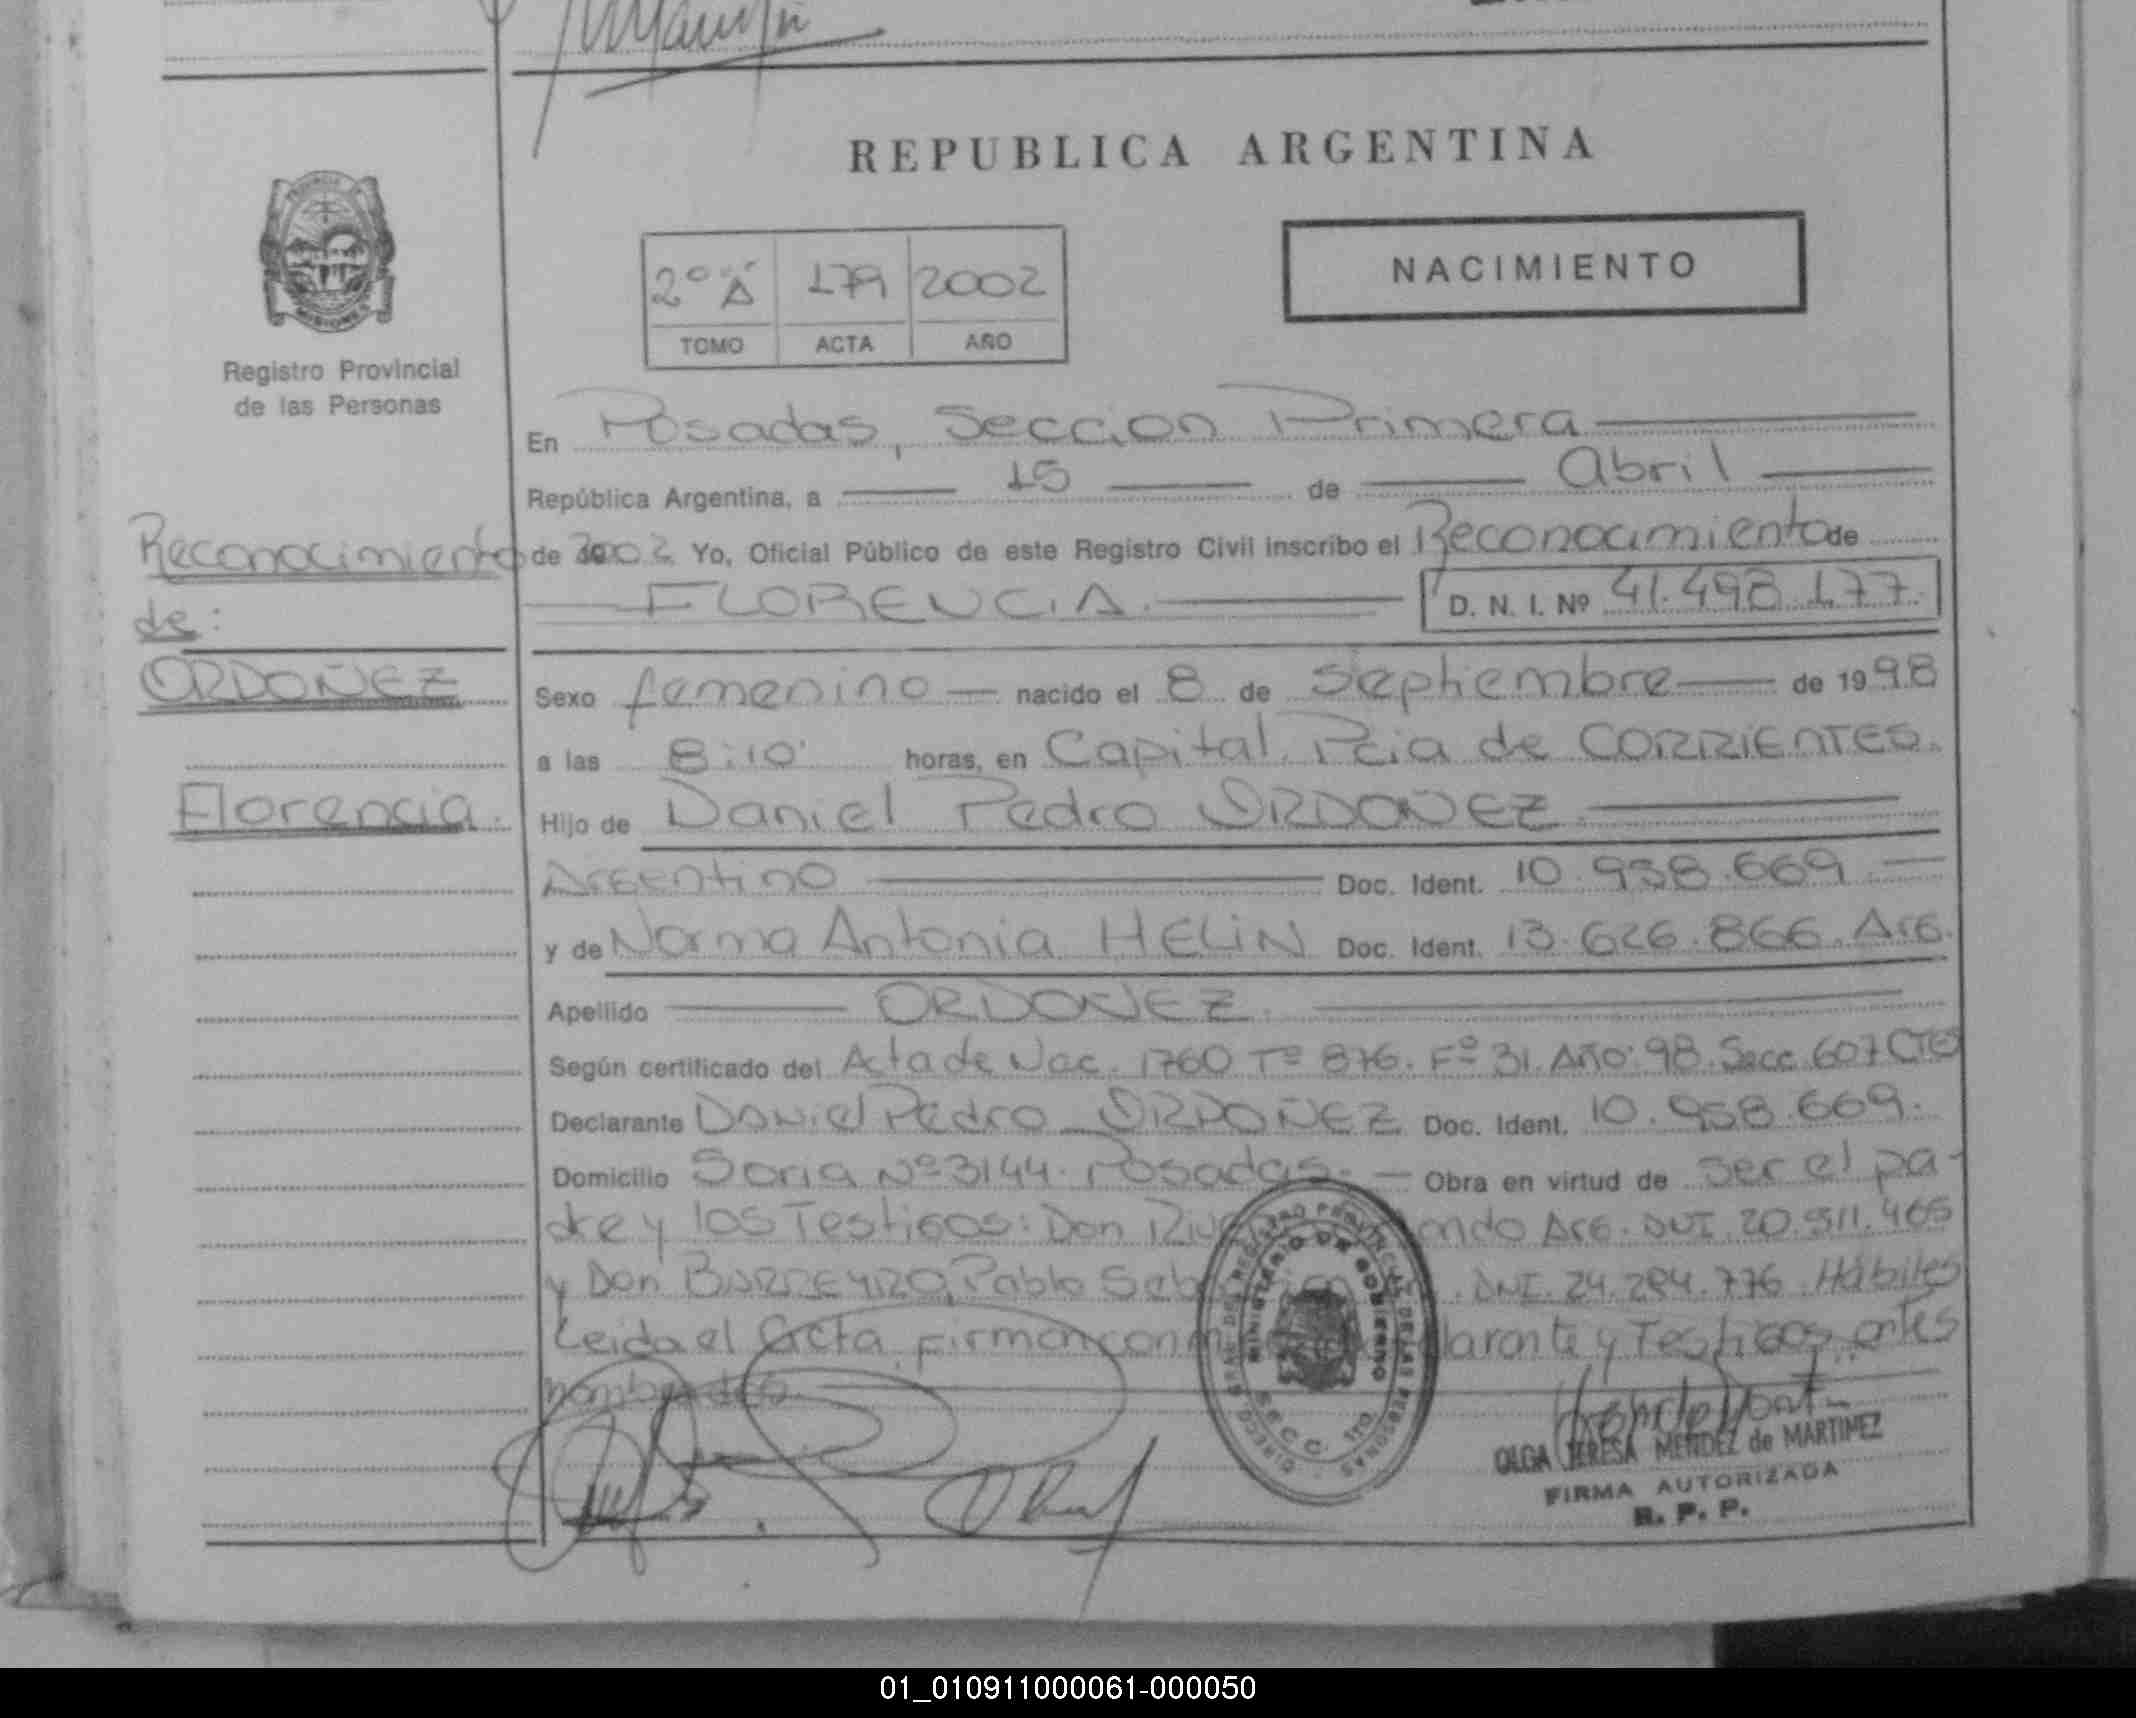 REPUBLICA ARGENTINA
PROVINCIA DE
MISIONES
Registro Provincial
de las Personas
2º A 179 2002
TOMO ACTA AÑO
NACIMIENTO
En Posadas, Seccion Primera
República Argentina, a 15 de Abril
de 2002 Yo, Oficial Público de este Registro Civil inscribo el Reconocimiento de
FLORENCIA. D. N. I. Nº 41.498.177.
Reconocimiento
de:
ORDOÑEZ
Florencia.
Sexo femenino nacido el 8 de Septiembre de 1998
a las 8:10 horas, en Capital. Pcia de CORRIENTES.
Hijo de Daniel Pedro ORDOÑEZ.
Argentino Doc. Ident. 10.958.669
y de Norma Antonia HELIN Doc. Ident. 13.626.866. Arg.
Apellido ORDOÑEZ.
Según certificado del Acta de Nac. 1760 Tº 876. Fº 31. Año: 98. Secc. 607 CTES
Declarante Daniel Pedro ORDOÑEZ Doc. Ident. 10.958.669.
Domicilio Soria Nº 3144. Posadas. Obra en virtud de ser el pa-
dre y los Testigos: Don Arg. DNI. 20.511.465
y Don BARREYRO, Pablo DNI. 24.284.776. Hábiles
Leida el Acta, firman y Testigos antes
nombrados.
DIREC. GRAL. DEL REGISTRO PROVINCIAL DE LAS PERSONAS
MINISTERIO DE GOBIERNO
SECC. 1ra
OLGA TERESA MENDEZ de MARTINEZ
FIRMA AUTORIZADA
R. P. P.
01_010911000061-000050